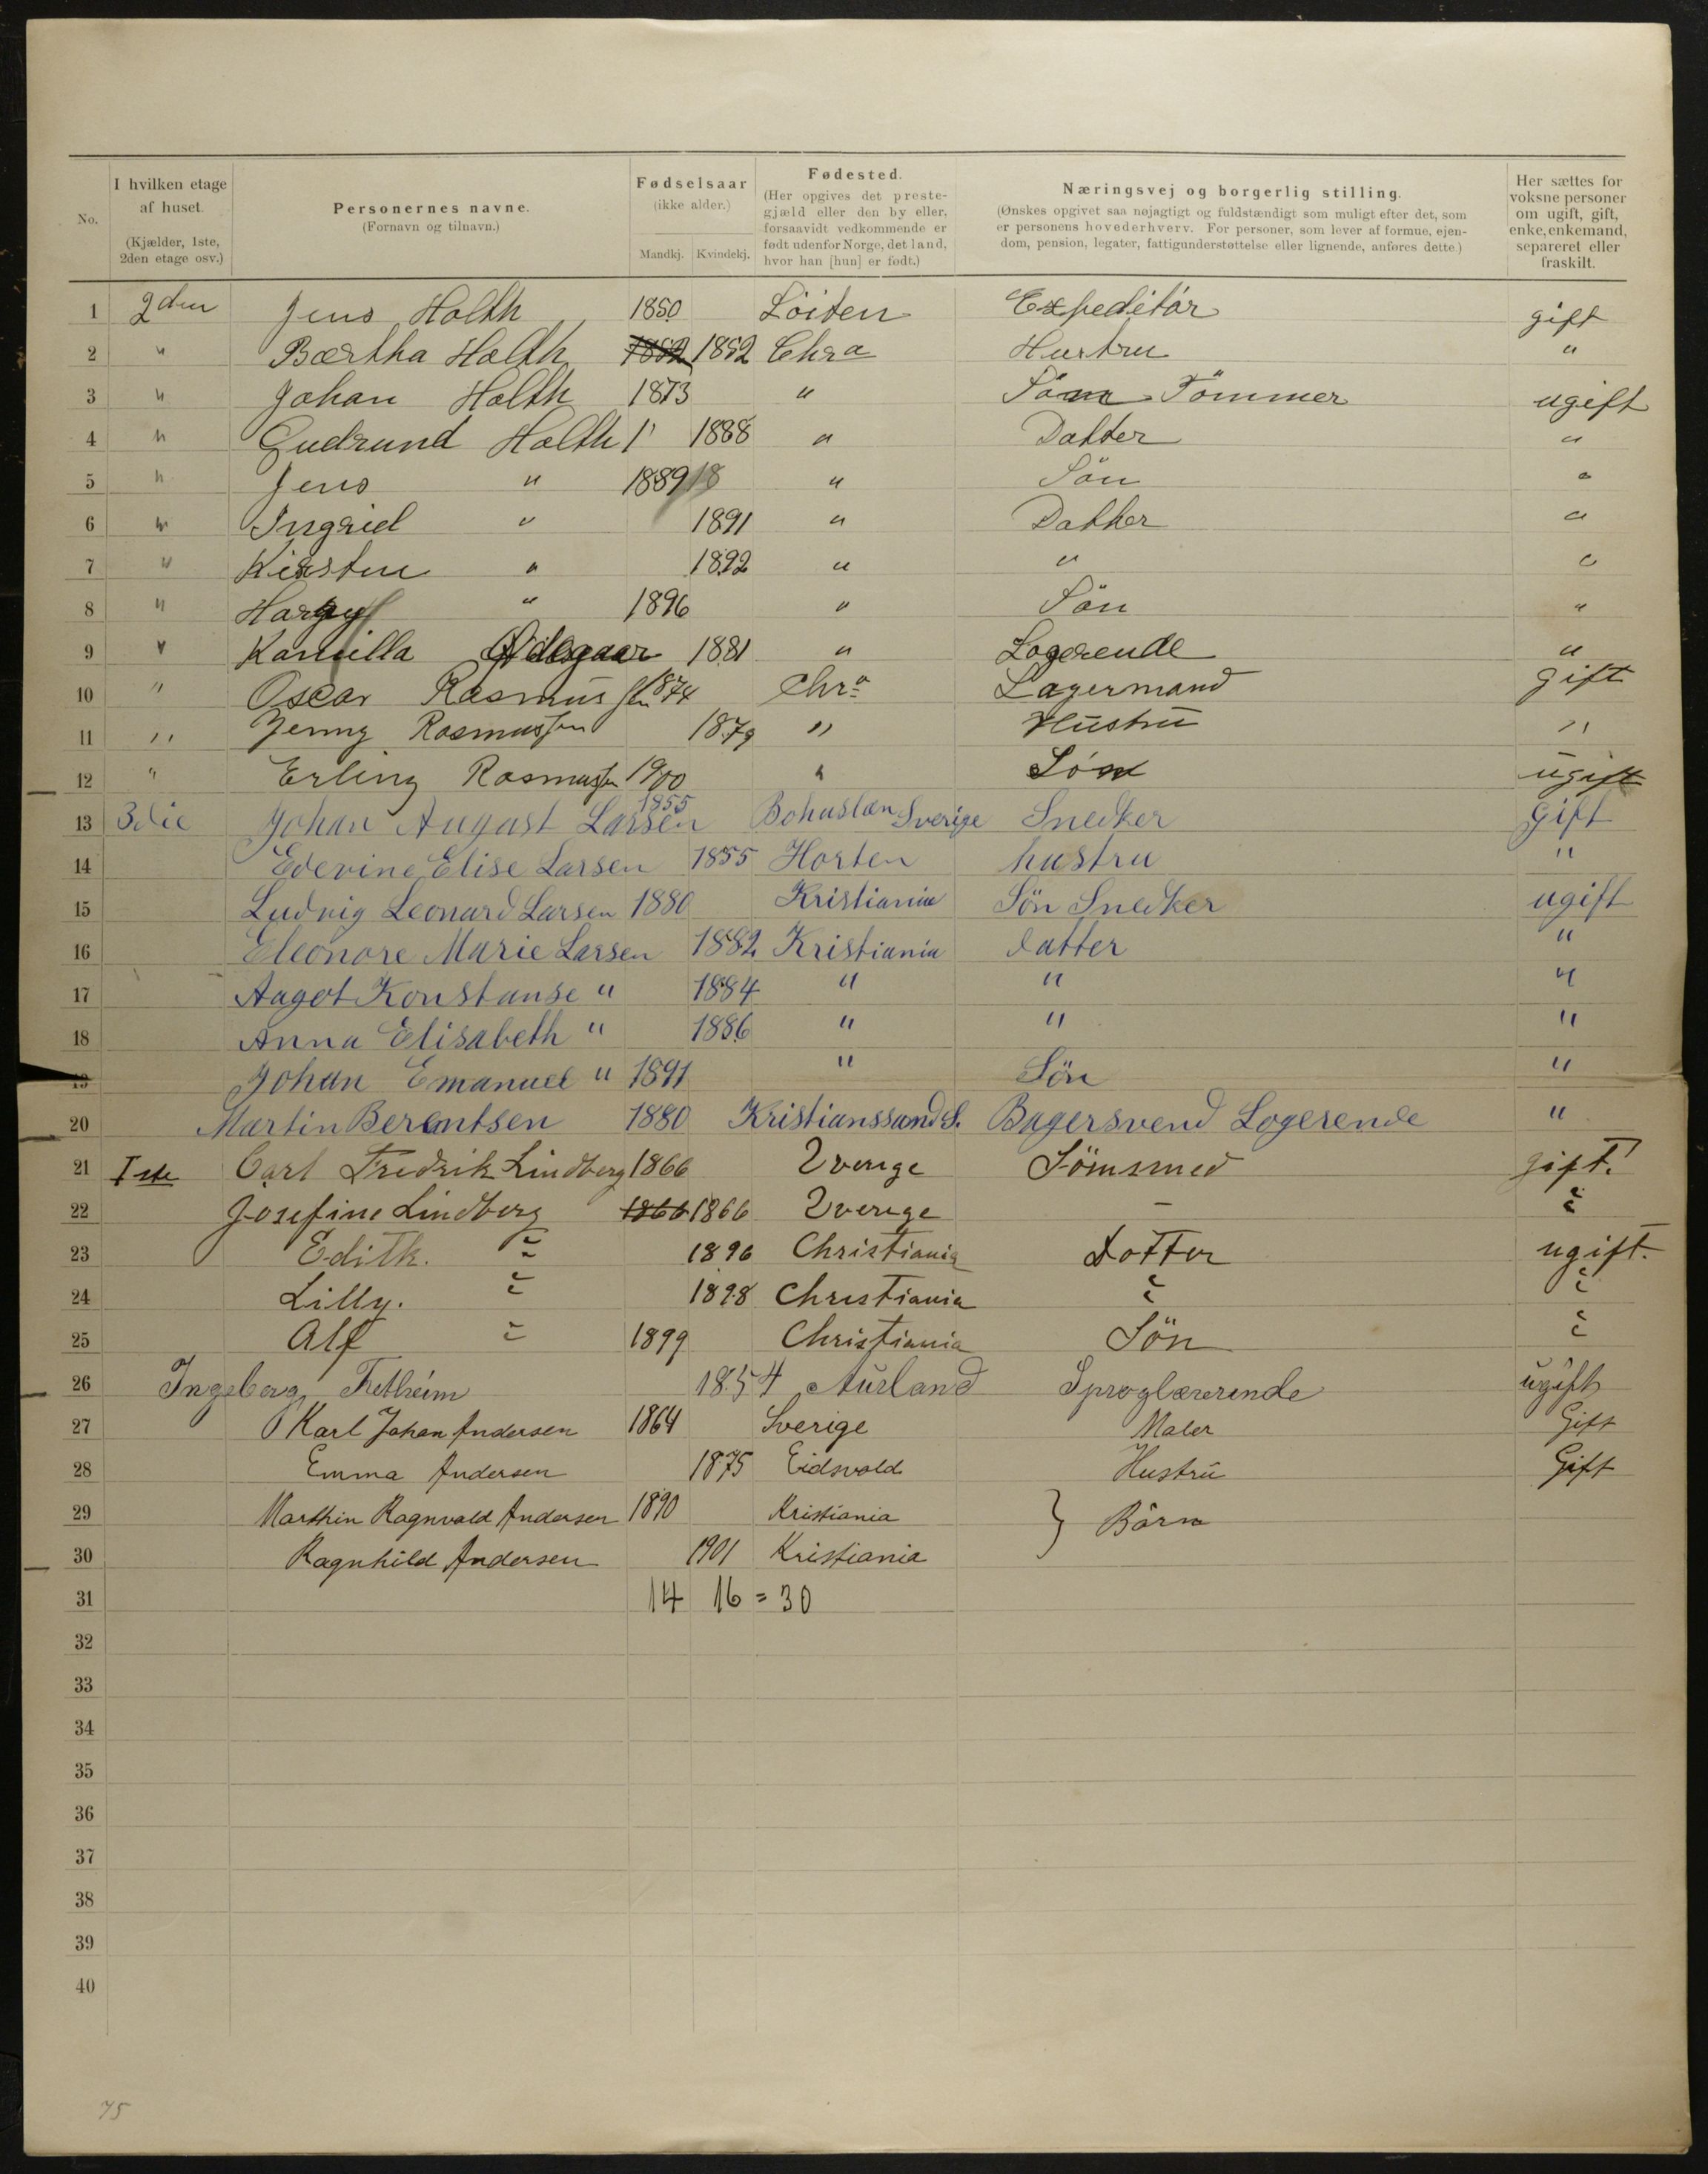 No. | I hvilken etage af huset. (Kjælder, 1ste, 2den etage osv.) | Personernes navne. (Fornavn og tilnavn.) | Fødselsaar (ikke alder.) Mandkj. Kvindekj. | Fødested. (Her opgives det prestegjæld eller den by eller, forsaavidt vedkommende er født udenfor Norge, det land, hvor han [hun] er født.) | Næringsvej og borgerlig stilling. (Ønskes opgivet saa nøjagtigt og fuldstændigt som muligt efter det, som er personens hovederhverv. For personer, som lever af formue, ejendom, pension, legater, fattigunderstøttelse eller lignende, anføres dette.) | Her sættes for voksne personer om ugift, gift, enke, enkemand, separeret eller fraskilt.
1 2den Jens Holth 1850 Löiten Expeditör gift
2 " Bærtha Holth 1852 1852 Chra Hustru "
3 " Johan Holth 1873 " Sön Tömmer ugift
4 " Gudrund Holth 1 1888 " Datter "
5 " Jens " 1889 18 " Sön "
6 " Ingrid " 1891 " Datter "
7 " Kirsten " 1892 " " "
8 " Harry " 1896 " Sön "
9 " Kamilla 1881 " Logerende "
10 " Oscar Rasmussen 1874 Chra Lagermand gift
11 " Jenny Rasmussen 1879 " Hustru "
12 " Erling Rasmussen 1900 " Sön ugift
13 3die Johan August Larsen 1855 Bohuslæn Sverige Snedker Gift
14 Edevine Elise Larsen 1855 Horten hustru "
15 Ludvig Leonard Larsen 1880 Kristiania Sön Snedker ugift
16 Eleonore Marie Larsen 1882 Kristiania datter "
17 Aagot Konstanse " 1884 " " "
18 Anna Elisabeth " 1886 " " "
19 Johan Emanuel " 1891 " Sön "
20 Martin Berentsen 1880 Kristianssand S. Bagersvend Logerende "
21 Iste Carl Fredrik Lindberg 1866 Sverige Sömsmed gift.
22 Josefine Lindberg 1866 1866 Sverige — "
23 Edith. " 1896 Christiania Dotter ugift.
24 Lilly. " 1898 Christiania " "
25 Alf " 1899 Christiania Sön "
26 Ingeborg Fretheim 1854 Aurland Sproglærerinde ugift
27 Karl Johan Andersen 1864 Sverige Maler Gift
28 Emma Andersen 1875 Eidsvold Hustru Gift
29 Marthin Ragnvald Andersen 1890 Kristiania } Börn
30 Ragnhild Andersen 1901 Kristiania
31 14 16 = 30
32
33
34
35
36
37
38
39
40
75